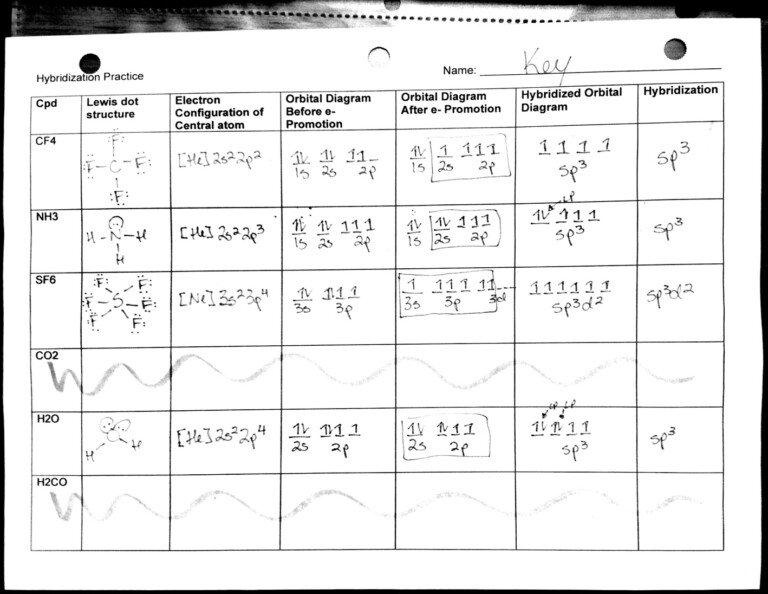 Hybridization Practice
Name: Key
Cpd Lewis dot structure Electron Configuration of Central atom Orbital Diagram Before e- Promotion Orbital Diagram After e- Promotion Hybridized Orbital Diagram Hybridization
CF4
F
F-C-F
F
[He]2s²2p²
1s 2s 2p
1s 2s 2p
sp³
sp³
NH3
H-N-H
H
[He]2s²2p³
1s 2s 2p
1s 2s 2p
LP
sp³
sp³
SF6
F F
F S F
F F
[Ne]3s²3p⁴
3s 3p
3s 3p 3d
sp³d²
sp³d²
CO2
H2O
H H
[He]2s²2p⁴
2s 2p
2s 2p
LP LP
sp³
sp³
H2CO